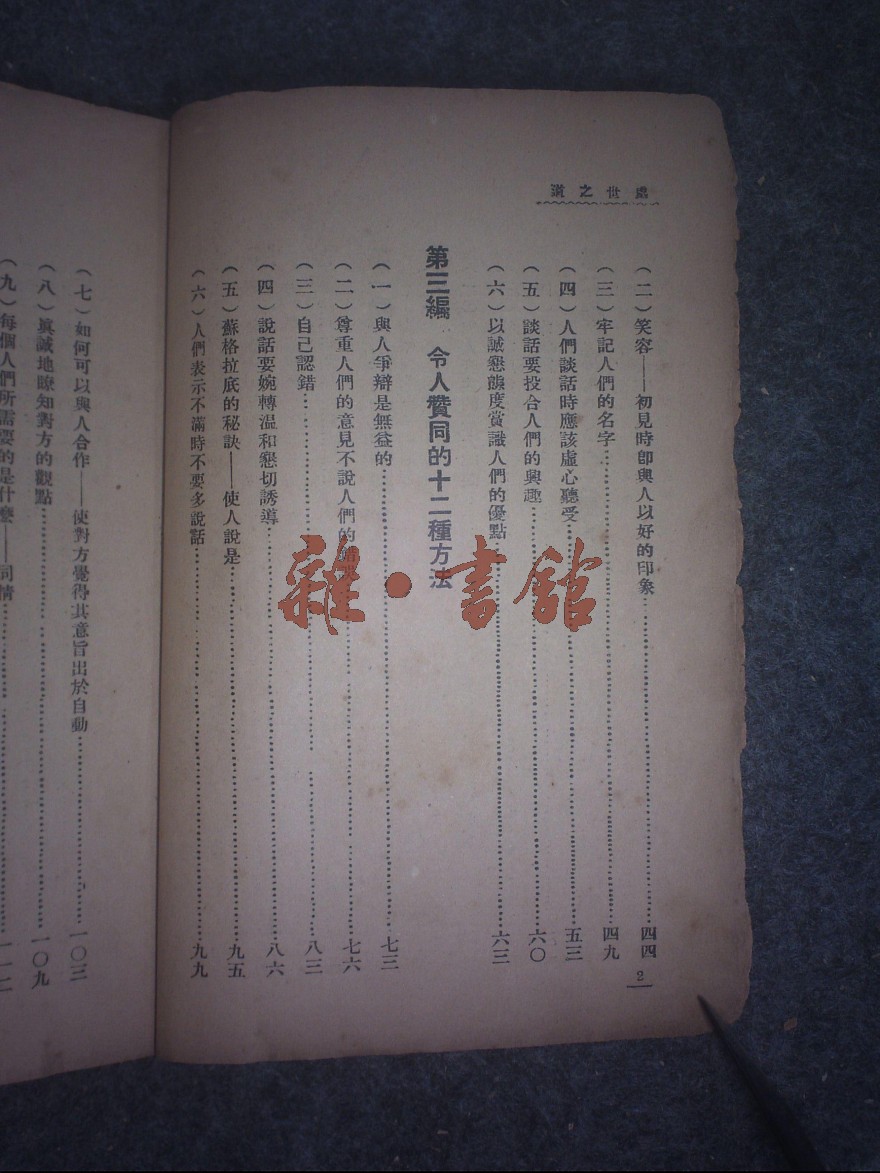 處世之道
(二)笑容——初見時即與人以好的印象……四四
(三)牢記人們的名字……四九
(四)人們談話時應該虛心聽受……五三
(五)談話要投合人們的興趣……六〇
(六)以誠懇態度賞識人們的優點……六三
第三編 令人贊同的十二種方法
(一)與人爭辯是無益的……七三
(二)尊重人們的意見不說人們的……七六
(三)自己認錯……八三
(四)說話要婉轉温和懇切誘導……八六
(五)蘇格拉底的秘訣——使人說是……九五
(六)人們表示不滿時不要多說話……九九
2
(七)如何可以與人合作——使對方覺得其意旨出於自動……一〇三
(八)眞誠地瞭知對方的觀點……一〇九
(九)每個人們所需要的是什麼——同情……一一
雜·書舘